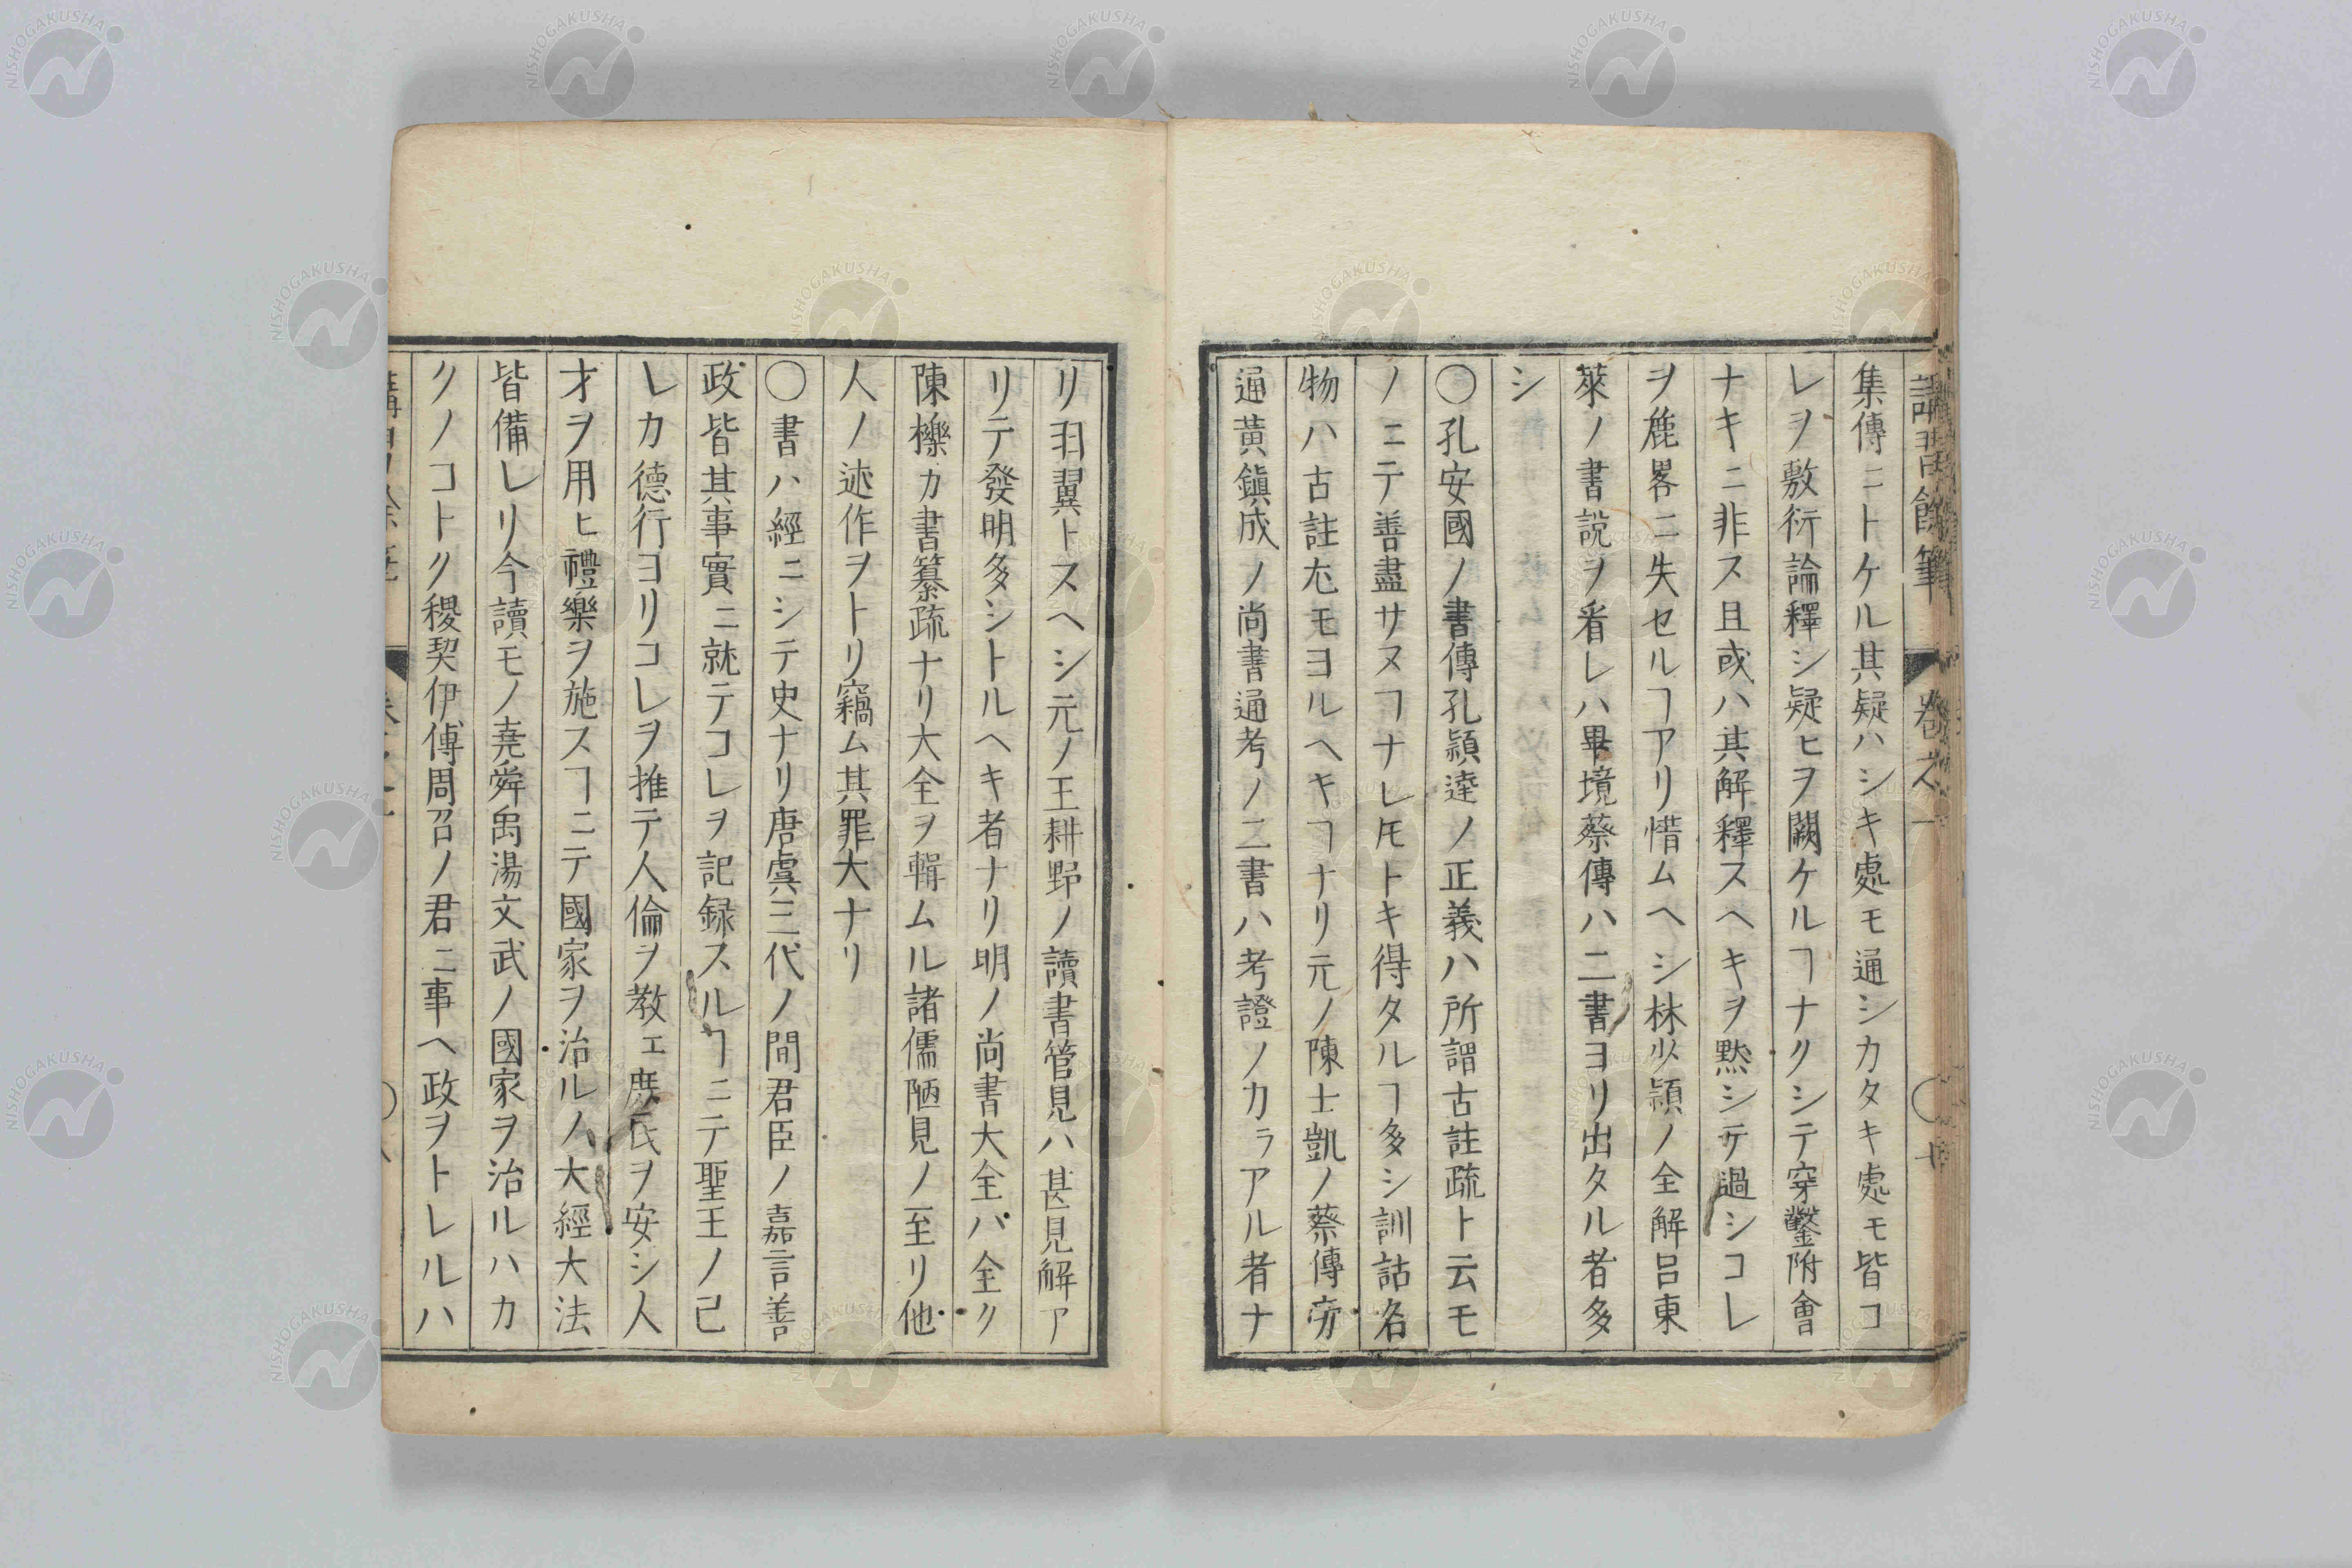 講習餘筆 卷之一 〇七
集傳ニトケル其疑ハシキ處モ通シカタキ處モ皆コ
レヲ敷衍論釋シ疑ヒヲ闕ケルヿナクシテ穿鑿附會
ナキニ非ス且或ハ其解釋スヘキヲ黙シテ過シコレ
ヲ麁畧ニ失セルヿアリ惜ムヘシ林少穎ノ全解呂東
萊ノ書説ヲ看レハ畢境蔡傳ハ二書ヨリ出タル者多
シ
〇孔安國ノ書傳孔頴達ノ正義ハ所謂古註疏ト云モ
ノニテ善盡サヌヿナレ𪜈トキ得タルヿ多シ訓詁名
物ハ古註尤モヨルヘキヿナリ元ノ陳士凱ノ蔡傳旁
通黃鎭成ノ尚書通考ノ二書ハ考證ノカラアル者ナ
リ羽翼トスヘシ元ノ王耕野ノ讀書管見ハ甚見解ア
リテ發明多シトルヘキ者ナリ明ノ尚書大全ハ全ク
陳櫟カ書纂疏ナリ大全ヲ輯ムル諸儒陋見ノ至リ他
人ノ迹作ヲトリ竊ム其罪大ナリ
〇書ハ經ニシテ史ナリ唐虞三代ノ間君臣ノ嘉言善
政皆其事實ニ就テコレヲ記録スルヿニテ聖王ノ己
レカ德行ヨリコレヲ推テ人倫ヲ教ェ庶民ヲ安シ人
才ヲ用ヒ禮樂ヲ施スヿニテ國家ヲ治ルノ大經大法
皆備レリ今讀モノ堯舜禹湯文武ノ國家ヲ治ルハカ
クノコトク稷契伊傅周召ノ君ニ事ヘ政ヲトレルハ